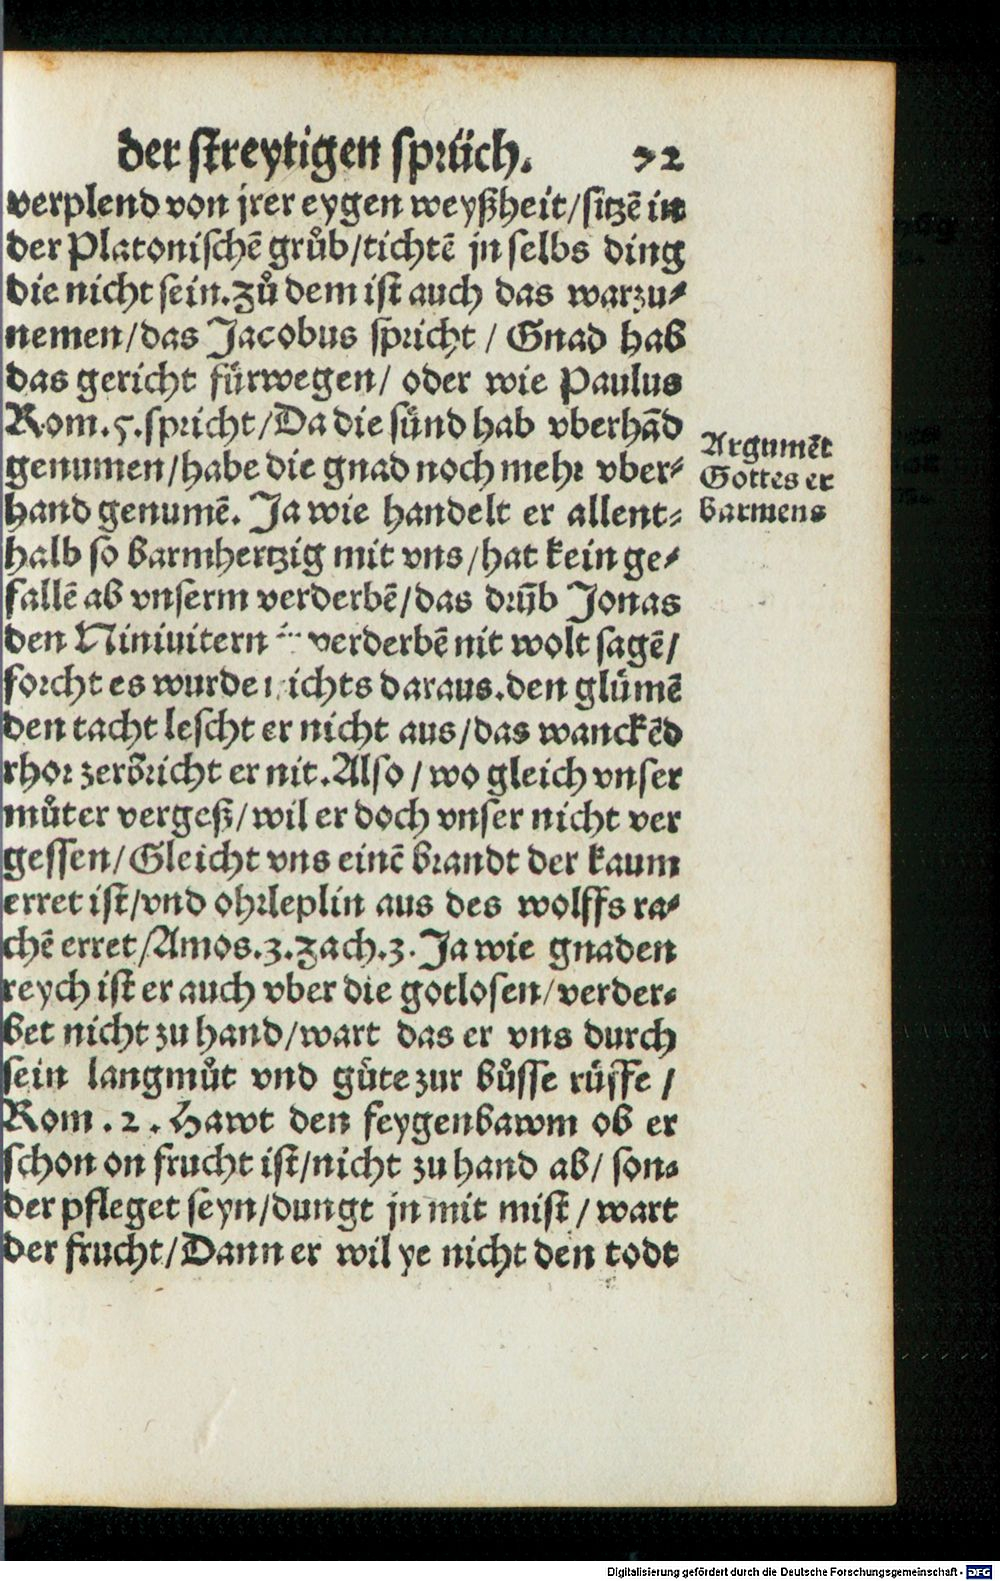 der streytigen sprüch. 72
verplend von jrer eygen weyßheit/sitzē in
der Platonischē grůb/tichtē jn selbs ding
die nicht sein.zů dem ist auch das warzu⸗
nemen/das Jacobus spricht / Gnad hab
das gericht fürwegen/ oder wie Paulus
Rom.5.spricht/Da die sünd hab vberhād
genumen/habe die gnad noch mehr vber⸗
hand genumē. Ja wie handelt er allent⸗
halb so barmhertzig mit vns/hat kein ge⸗
fallē ab vnserm verderbē/das drüb Jonas
den Niniuitern verderbē nit wolt sagē/
forcht es wurde nichts daraus.den glümē
den tacht lescht er nicht aus/das wanckēd
rhor zerbricht er nit.Also / wo gleich vnser
můter vergeß/wil er doch vnser nicht ver
gessen/Gleicht vns einē brandt der kaum
erret ist/vnd ohrleplin aus des wolffs ra⸗
chē erret/Amos.3.Zach.3. Ja wie gnaden
reych ist er auch vber die gotlosen/verder⸗
bet nicht zu hand/wart das er vns durch
sein langmůt vnd güte zur bůsse rüffe /
Rom .2. Hawt den feygenbawm ob er
schon on frucht ist/nicht zu hand ab/ son⸗
der pfleget seyn/dungt jn mit mist / wart
der frucht/Dann er wil ye nicht den todt
Argumēt
Gottes er
barmens
Digitalisierung gefördert durch die Deutsche Forschungsgemeinschaft - DFG